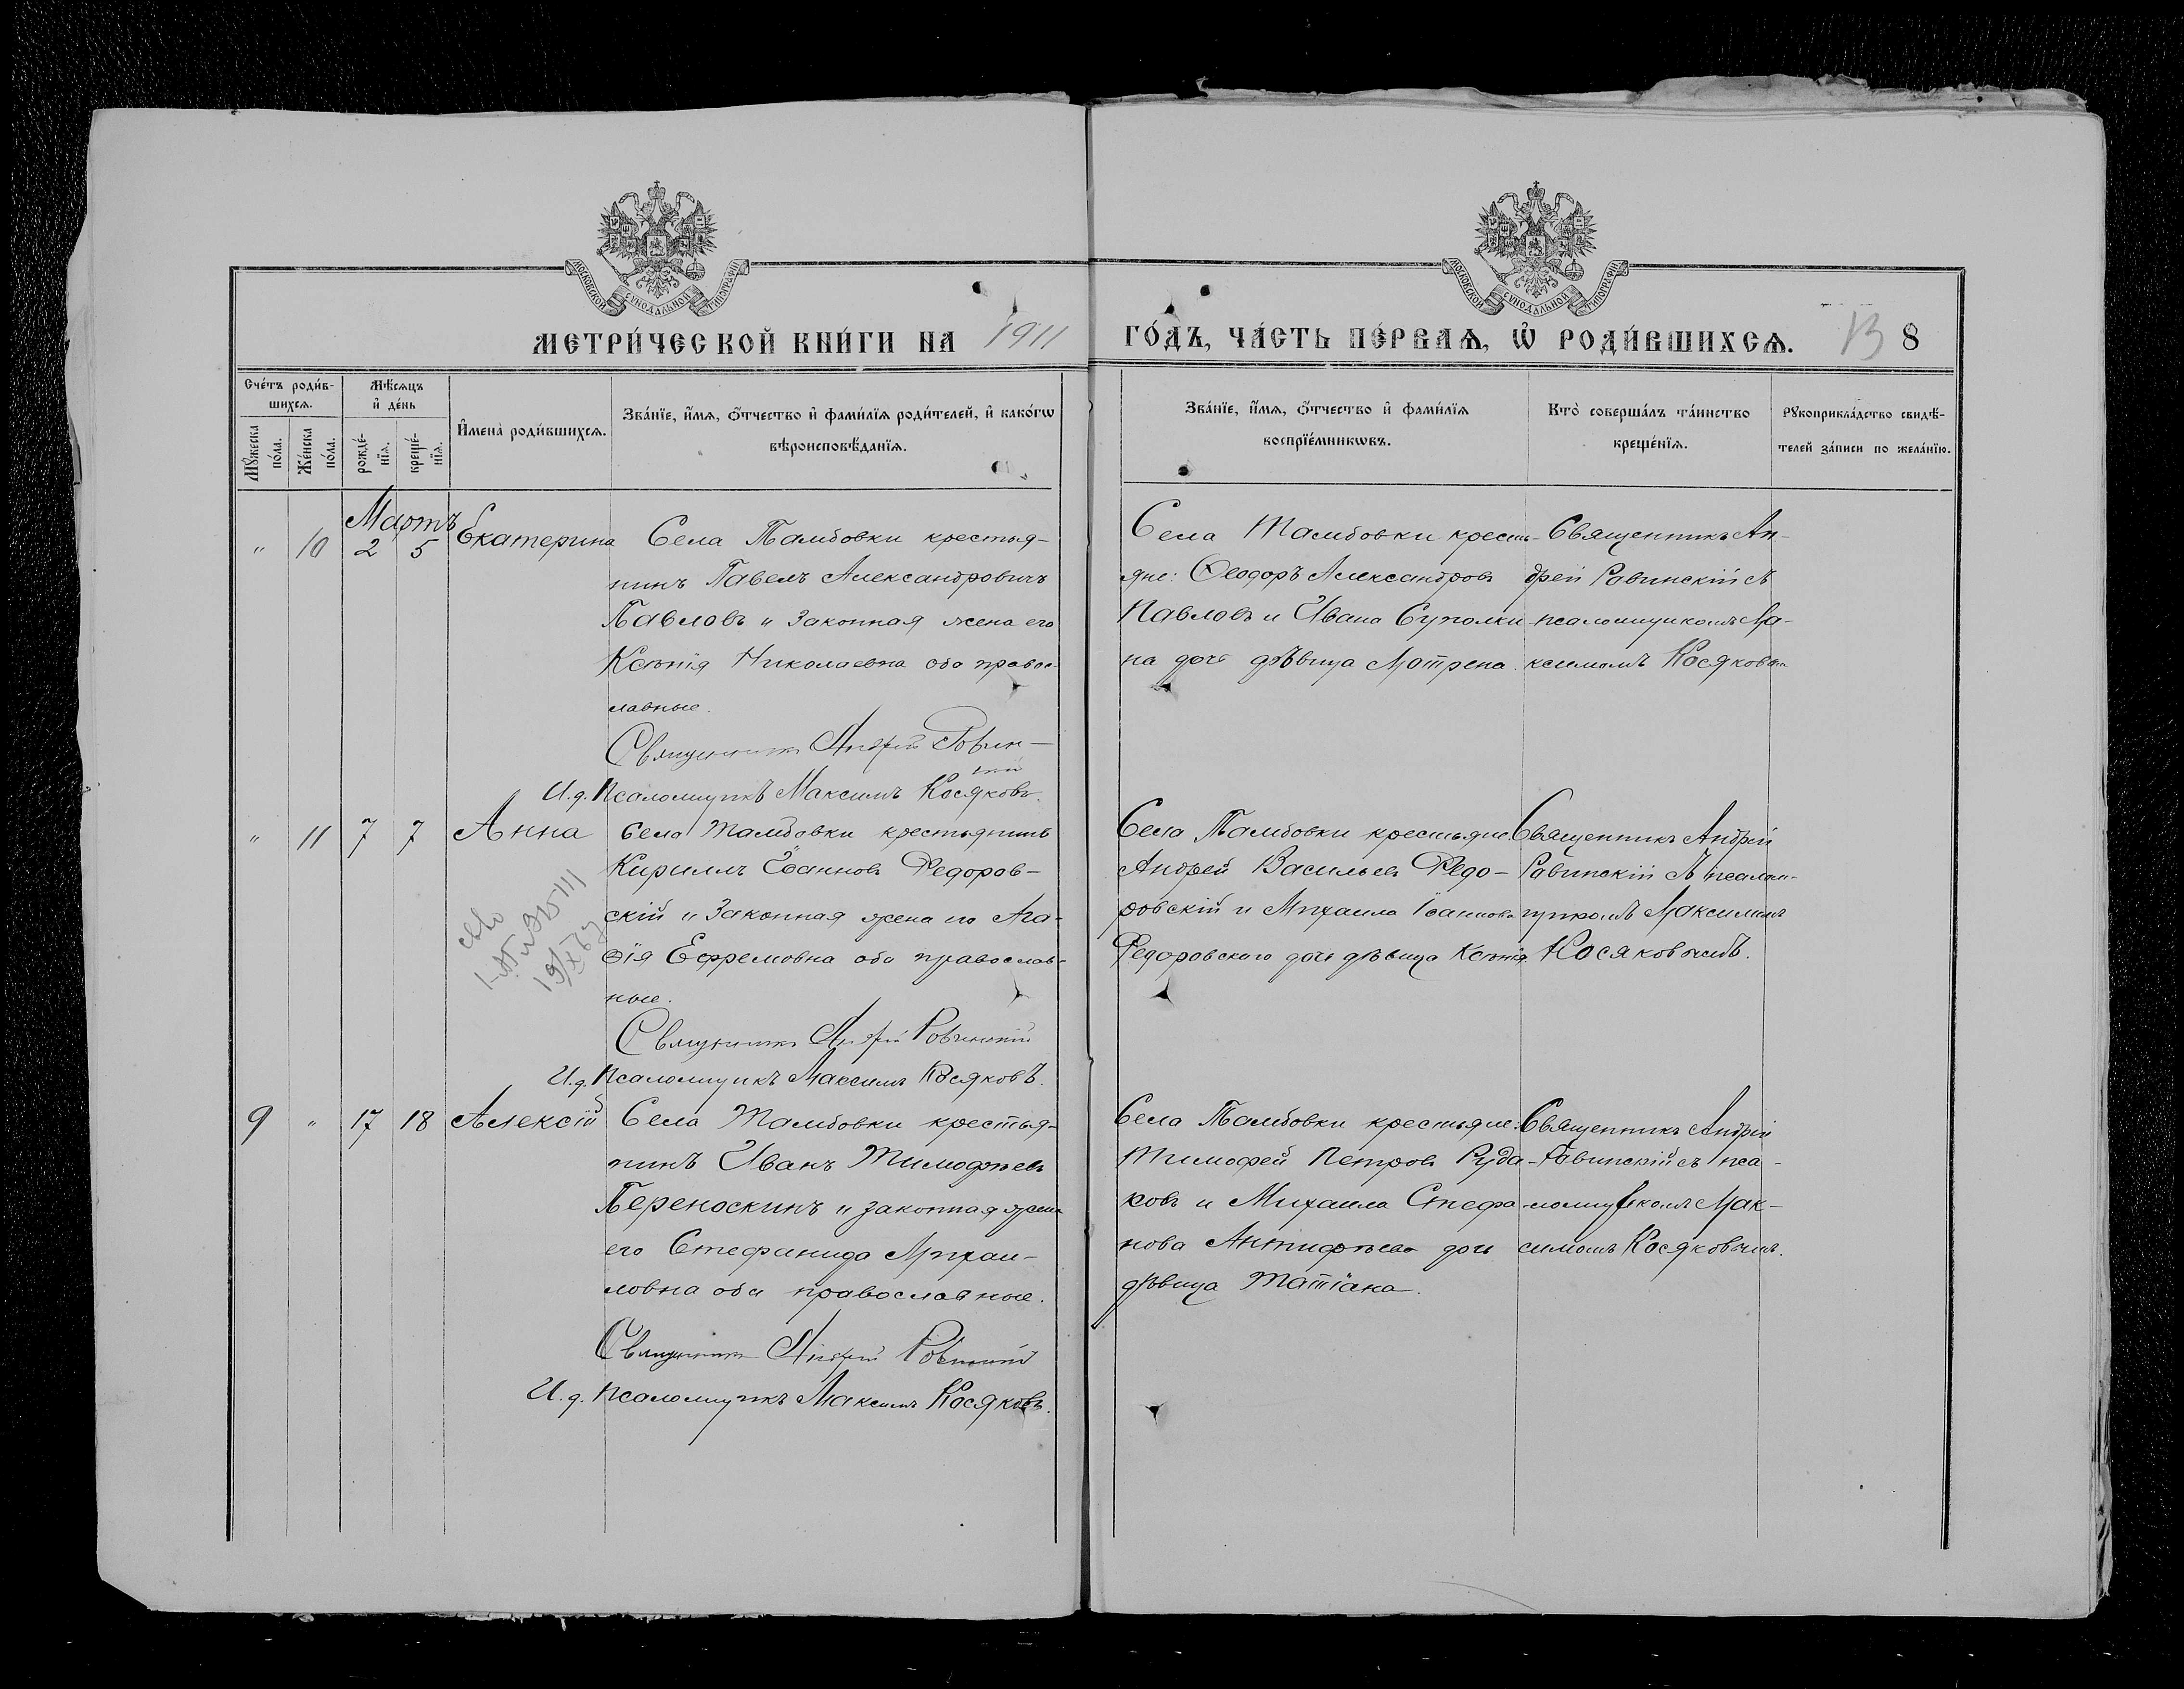 МОСКОВСКОЙ СѴНОДАЛЬНОЙ ТИПОГРАФІИ
МОСКОВСКОЙ СѴНОДАЛЬНОЙ ТИПОГРАФІИ
МЕТРИ́ЧЕСКОЙ КНИ́ГИ НА 1911
ГО́ДЪ, ЧА́СТЬ ПЕ́РВАѦ, Ѽ РОДИ́ВШИХСѦ. 13 8
Сче́тъ роди́в-
шихсѧ.
Мꙋ́жеска
по́ла.
Же́нска
по́ла.
Мѣ́сѧцъ
и҆ де́нь
рожде́-
нїѧ.
креще́-
нїѧ.
И҆мена̀ роди́вшихсѧ.
Зва́нїе, и҆́мѧ, ѻ҆́тчество и҆ фами́лїѧ роди́телей, и҆ како́гѡ
вѣроисповѣ́данїѧ.
Зва́нїе, и҆́мѧ, ѻ҆́тчество и҆ фами́лїѧ
воспрїе́мникѡвъ.
Кто̀ соверша́лъ та́инство
креще́нїѧ.
Рꙋкоприкла́дство свидѣ́-
телей за́писи по жела́нїю.
Мартъ
" 10 2 5 Екатерина
Села Тамбовки крестья-
нинъ Павелъ Александровичъ
Павловъ и законная жена его
Ксенія Николаевна оба правос-
лавные.
Священникъ Андрей Ровин-
скій
И.д. Псаломщикъ Максимъ Косяковъ.
Села Тамбовки кресть-
яне: Ѳеодоръ Александровъ
Павловъ и Ивана Суполки-
на дочь дѣвица Матрена.
Священникъ Ан-
дрей Ровинскій съ
псаломщикомъ Ма-
ксимомъ Косяковымъ
" 11 7 7 Анна
Села Тамбовки крестьянинъ
Кириллъ Іоанновъ Федоров-
скій и законная жена его Ага-
ѳія Ефремовна оба православ-
ные.
Священникъ Андрей Ровинскій
И.д. Псаломщикъ Максимъ Косяковъ.
Села Тамбовки крестьяне:
Андрей Васильевъ Федо-
ровскій и Михаила Іоаннова
Федоровского дочь дѣвица Ксенія.
Священникъ Андрей
Ровинскій съ псалом-
щикомъ Максимомъ
Косяковымъ.
9 " 17 18 Алексій
Села Тамбовки крестья-
нинъ Иванъ Тимофеевъ
Переноскинъ и законная жена
его Стефанида Михаи-
ловна оба православные.
Священникъ Андрей Ровинскій
И.д. Псаломщикъ Максимъ Косяковъ.
Села Тамбовки крестьяне:
Тимофей Петровъ Руда-
ковъ и Михаила Стефа-
нова Антифѣева дочь
дѣвица Татіана.
Священникъ Андрей
Ровинскій съ пса-
ломщикомъ Мак-
симомъ Косяковымъ.